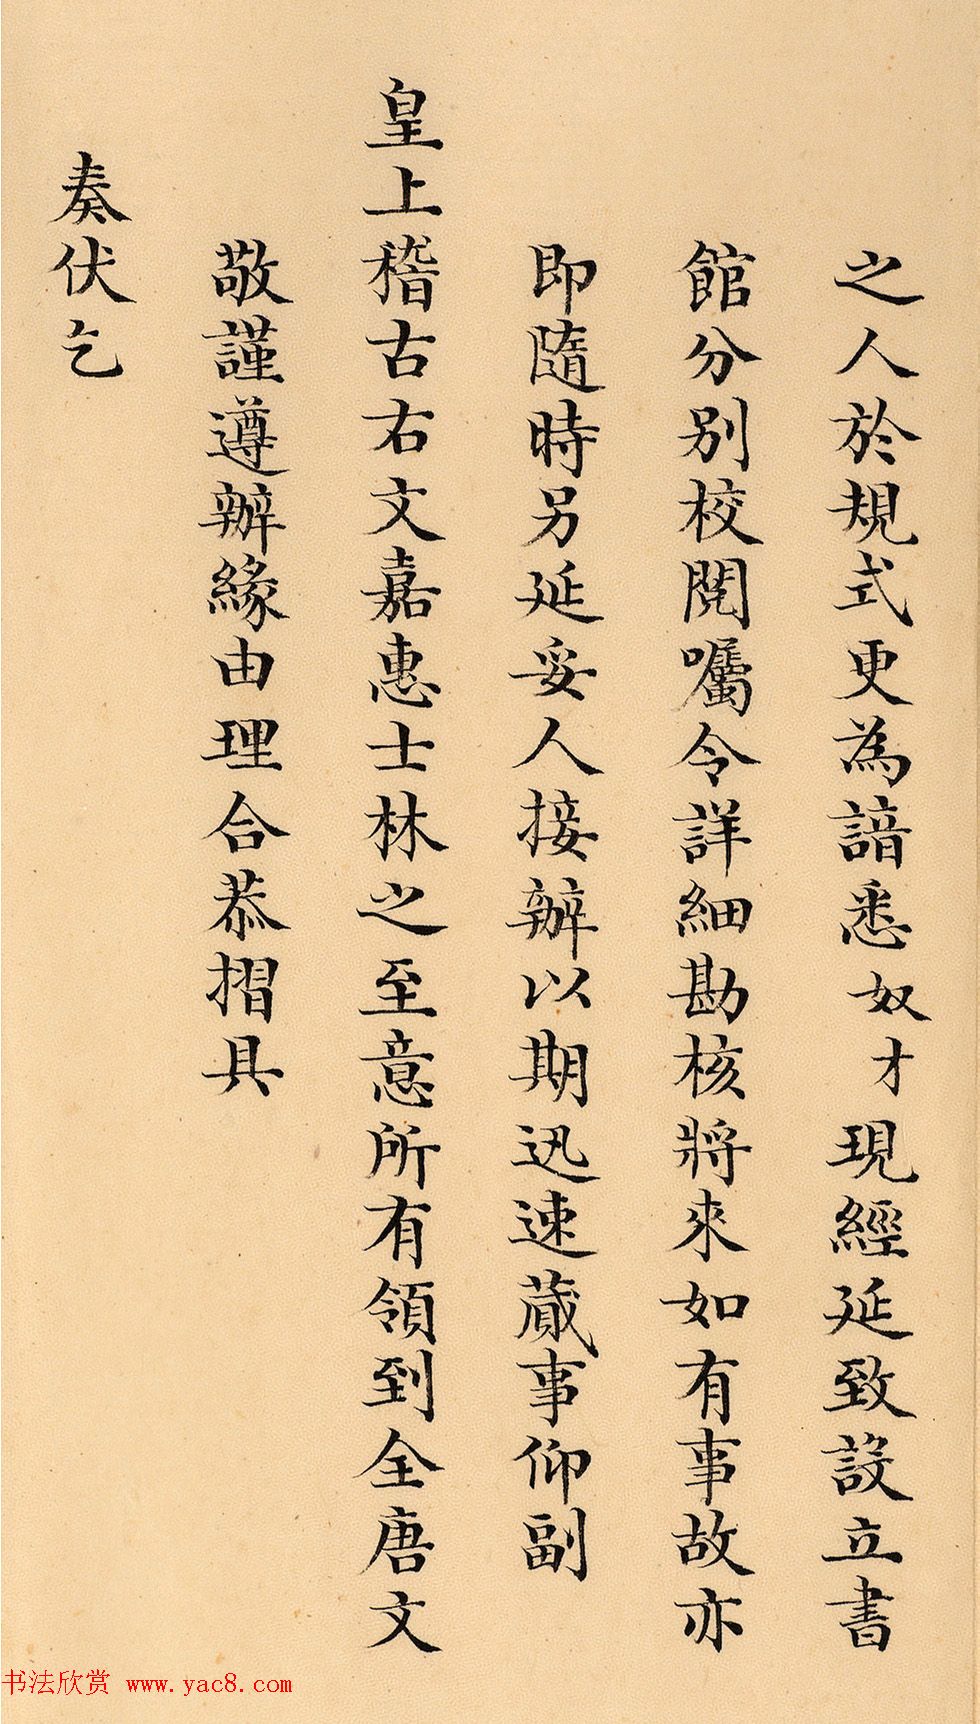 之人於規式更為諳悉奴才現經延致設立書
館分別校閱囑令詳細勘核將來如有事故亦
即隨時另延妥人接辦以期迅速蕆事仰副
皇上稽古右文嘉惠士林之至意所有領到全唐文
敬謹遵辦緣由理合恭摺具
奏伏乞
书法欣赏 www.yac8.com